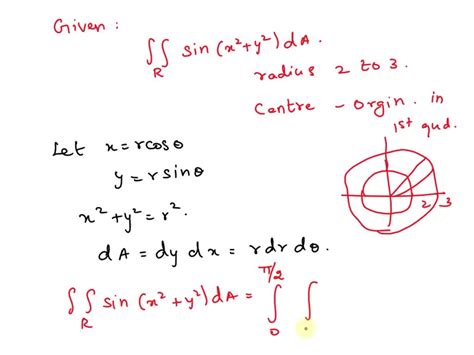 Given :
∬ sin (x²+y²) dA .
R
radius 2 to 3.
Centre - Orgin. in
1st qud.
Let x = r cos θ
y = r sin θ
x² + y² = r².
dA = dy dx = r dr dθ.
2 3
∬ sin (x²+y²) dA = ∫ ∫
R
π/2
0